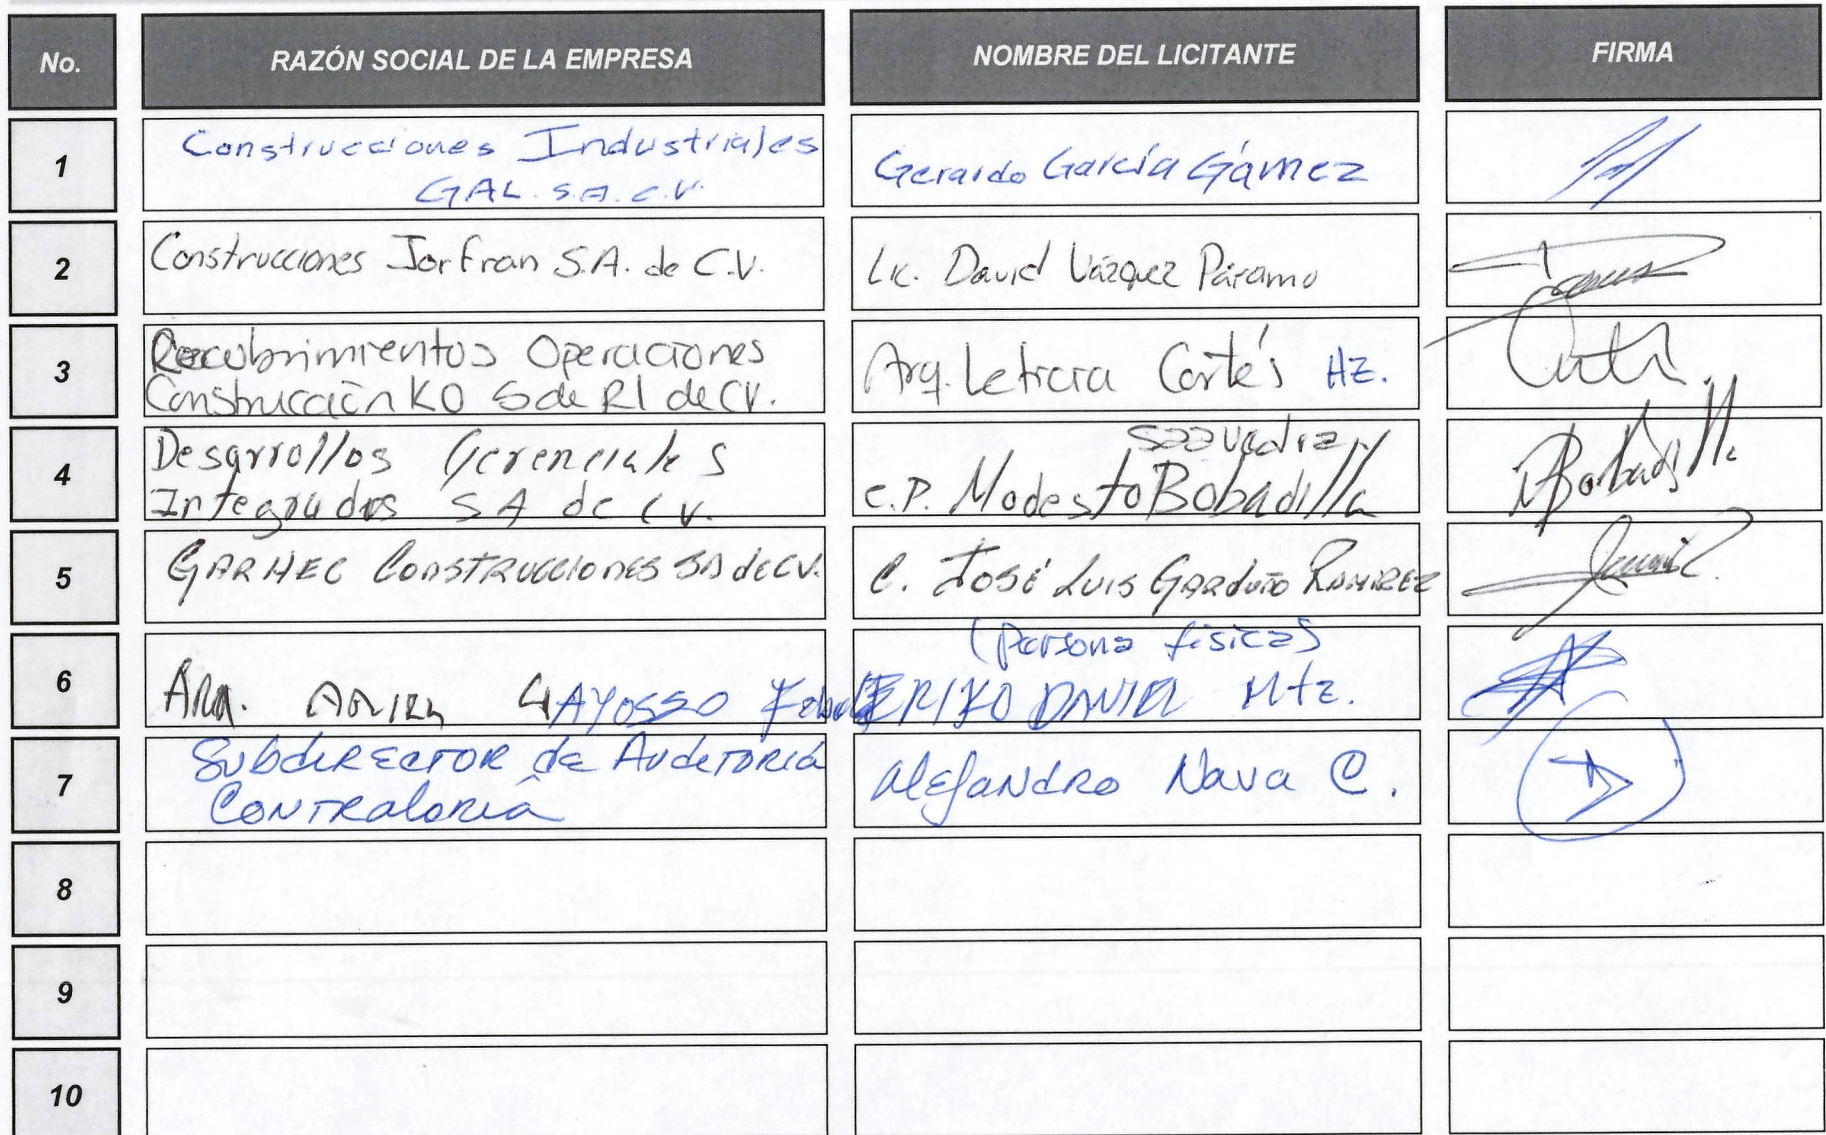 No. RAZÓN SOCIAL DE LA EMPRESA NOMBRE DEL LICITANTE FIRMA
1 Construcciones Industriales
GAL. S.A. C.V. Gerardo García Gámez
2 Construcciones Jorfran S.A. de C.V. Lic. David Vázquez Páramo
3 Recubrimientos Operaciones
Construcción KO S de Rl de CV. Arq. Leticia Cortés HZ.
4 Desarrollos Gerenciales
Integrados SA de CV. C.P. Modesto Bobadilla
5 GARHEC CONSTRUCCIONES SA de CV. C. JOSÉ LUIS GARDUÑO RAMIREZ
(persona física)
6 GAYOSSO DANIEL Mtz.
7 SUBDIRECTOR de AUDITORIA
CONTRALORIA Alejandro Nava C.
8
9
10